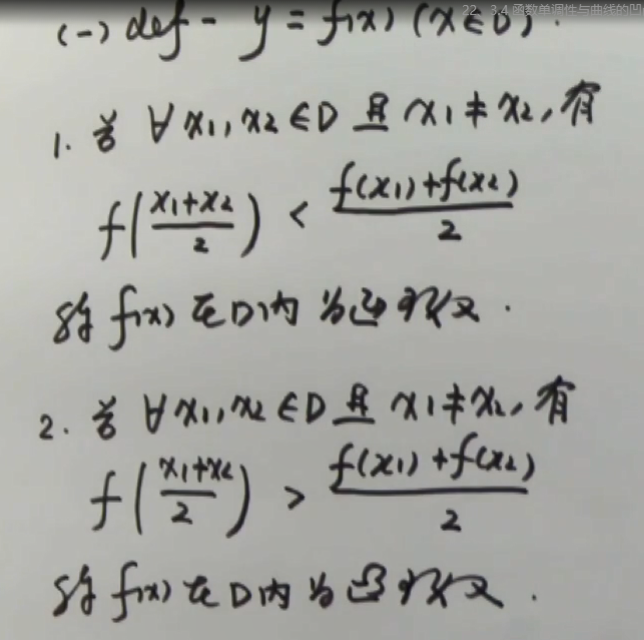 22、3.4函数单调性与曲线的凹
(一) def - y = f(x) (x∈D).
1. 若 ∀x₁,x₂∈D 且 x₁≠x₂,有
f((x₁+x₂)/2) < (f(x₁)+f(x₂))/2
称 f(x) 在D内为凹函数.
2. 若 ∀x₁,x₂∈D 且 x₁≠x₂,有
f((x₁+x₂)/2) > (f(x₁)+f(x₂))/2
称 f(x) 在D内为凸函数.